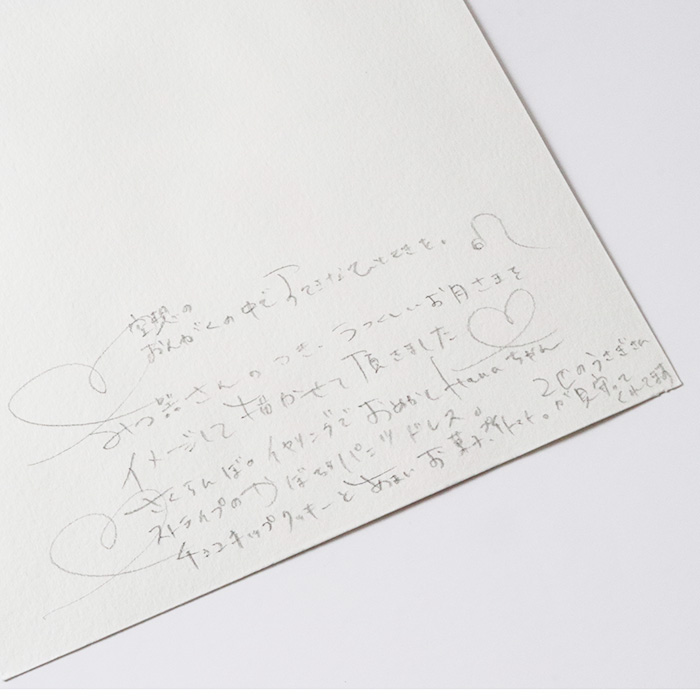 空想の
おんがくの中で すてきなひとときを。
みつ器さんのつき、うつくしいお月さまを
イメージして 描かせて 頂きました
さくらんぼのイヤリングで おめかし Hanaちゃん
ストライプの かぼちゃパンツ ドレス。
チョコチップクッキーと あまい お菓子
2匹のうさぎさん
が見守って
くれてます